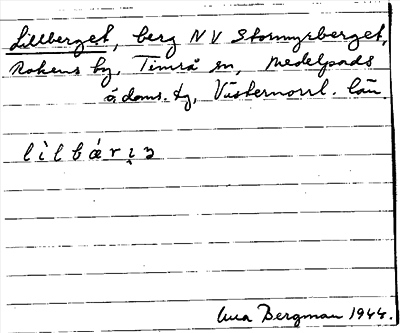 Lillberget, berg NV Stormyrberget,
Rokens by, Timrå sn, Medelpads
ö doms. tg, Västernorrl. län
lìlbárı̣ʒ
Bergman 1944.